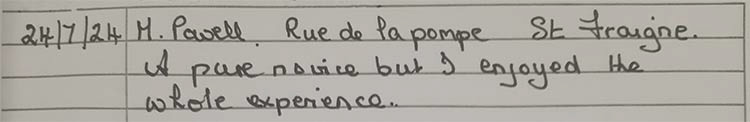 24/7/24 M. Pavell. Rue de la pompe St Fraigne.
A pure novice but I enjoyed the
whole experience..